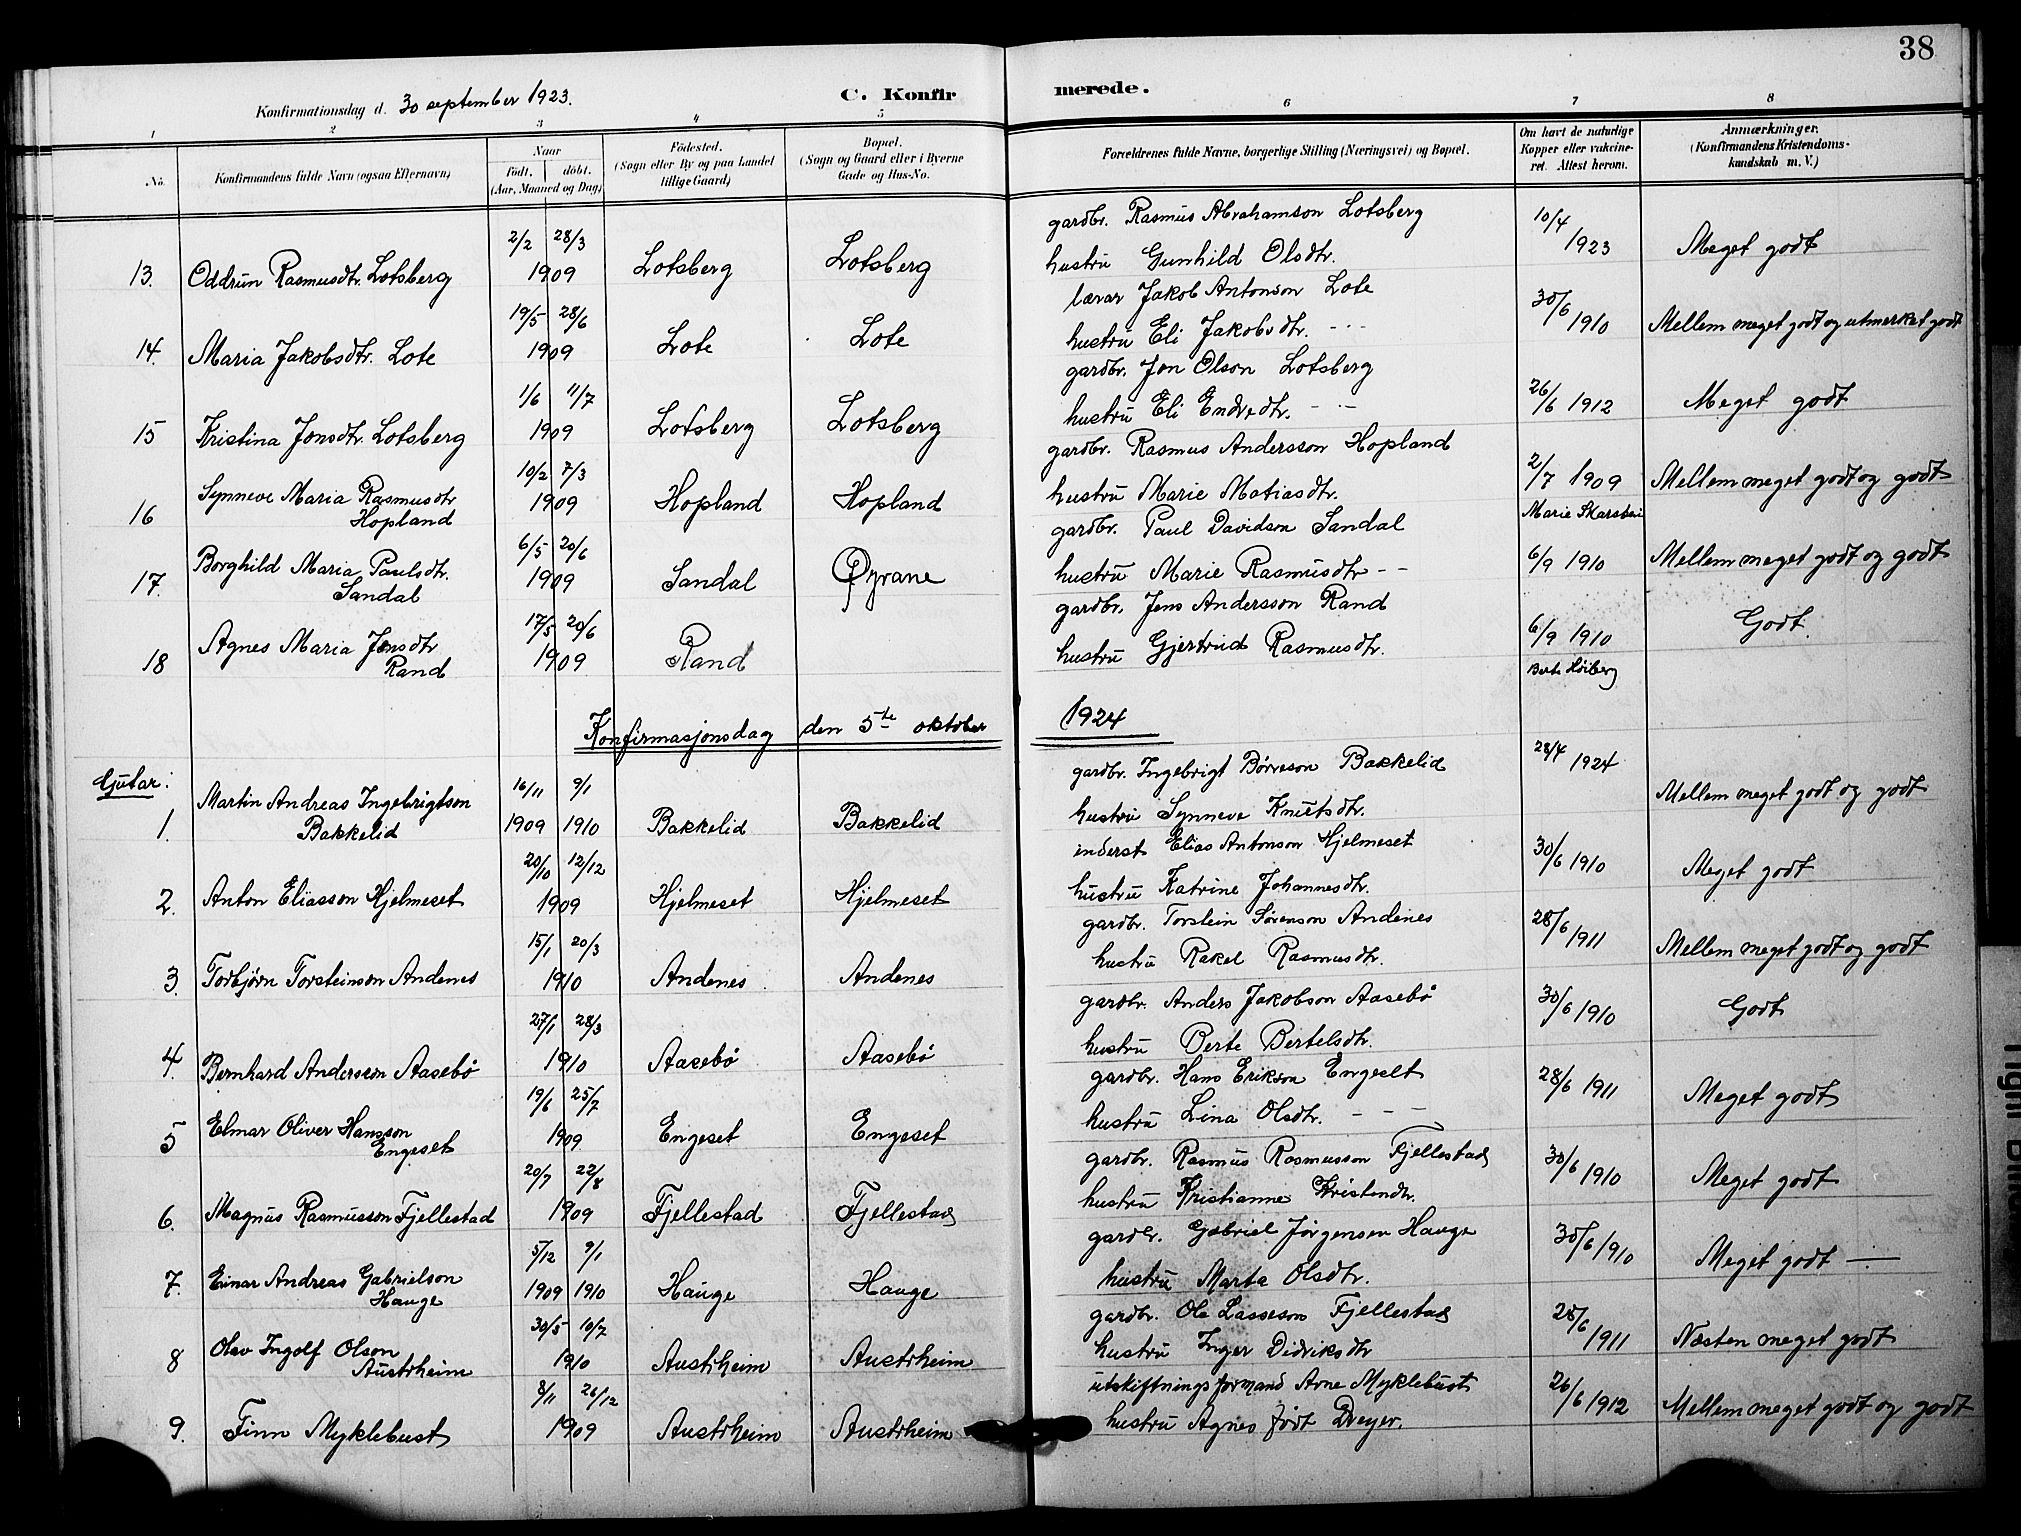 38
Konfirmationsdag d. 30 september 1923. C. Konfirmerede.
1 2 3 4 5 6 7 8
No. Konfirmandens fulde Navn (ogsaa Efternavn) Naar født. døbt. (Aar, Maaned og Dag) Födested. (Sogn eller By og paa Landet tillige Gaard) Bopæl. (Sogn og Gaard eller i Byerne Gade og Hus-No. Forældrenes fulde Navne, borgerlige Stilling (Næringsvei) og Bopæl. Om havt de naturlige Kopper eller vakcineret. Attest herom. Anmærkninger. (Konfirmandens Kristendomskundskab m. V.)
gardbr. Rasmus Abrahamson Lotsberg 10/4
2/2 28/3 1923
13. Oddrun Rasmusdtr. Lotsberg 1909 Lotsberg Lotsberg hustru Gunhild Olsdtr. Meget godt
lærar Jakob Antonson Lote
19/5 28/6 30/6 1910
14. Maria Jakobsdtr. Lote 1909 Lote Lote hustru Eli Jakobsdtr. - - - Mellem meget godt og utmerket godt
gardbr. Jon Olson Lotsberg
1/6 11/7 26/6 1912
15 Kristina Jonsdtr. Lotsberg 1909 Lotsberg Lotsberg hustru Eli Endredtr. - - - Meget godt
gardbr. Rasmus Andersson Hopland
10/2 7/3 2/7 1909
16 Synneve Maria Rasmusdtr Hopland 1909 Hopland Hopland hustru Marie Matiasdtr. Mellem meget godt og godt
gardbr. Paul Davidson Sandal
6/5 20/6 6/9 1910
17. Borghild Maria Paulsdtr. Sandal 1909 Sandal Øyrane hustru Marie Rasmusdtr - - Mellem meget godt og godt
gardbr. Jens Andersson Rand
17/5 20/6 6/9 1910
18 Agnes Maria Jensdtr Rand 1909 Rand hustru Gjertrud Rasmusdtr. Godt.
Konfirmasjonsdag den 5te oktober 1924
Gutar:
gardbr. Ingebrigt Børreson Bakkelid 28/4 1924
16/11 9/1
1. Martin Andreas Ingebrigtson Bakkelid 1909 1910 Bakkelid Bakkelid hustru Synneve Knutsdtr. Mellem meget godt og godt
inderst Elias Antonson Hjelmeset
20/10 12/12 30/6 1910
2. Anton Eliasson Hjelmeset 1909 Hjelmeset Hjelmeset hustru Katrine Johannesdtr. Meget godt
gardbr. Torstein Sørenson Andenes
15/1 20/3 28/6 1911
3. Torbjørn Torsteinson Andenes 1910 Andenes Andenes hustru Rakel Rasmusdtr. Mellem meget godt og godt
gardbr. Anders Jakobson Aasebø
27/1 28/3 30/6 1910
4. Bernhard Andersson Aasebø 1910 Aasebø Aasebø hustru Berte Bertelsdtr. Godt
gardbr. Hans Erikson Engeset
19/6 25/7 28/6 1911
5 Elmar Oliver Hansson Engeset 1909 Engeset Engeset hustru Lina Olsdtr. - - - Meget godt
gardbr. Rasmus Rasmusson Fjellestad
20/7 22/8 30/6 1910
6. Magnus Rasmusson Fjellestad 1909 Fjellestad Fjellestad hustru Kristianne Kristendtr. Meget godt
gardbr. Gabriel Jørgensen Hauge
5/12 9/1 30/6 1910
7. Einar Andreas Gabrielson Hauge 1909 1910 Hauge Hauge hustru Marta Olsdtr. Meget godt
gardbr. Ole Lasseson Fjellestad
30/5 10/7 28/6 1911
8 Olav Ingolf Olson Austrheim 1910 Austrheim Austrheim hustru Inger Didriksdtr Næsten meget godt
utskiftningsformand Arne Myklebust
8/11 26/12 26/6 1912
9. Finn Myklebust 1909 Austrheim Austrheim hustru Agnes født Dreyer. Mellem meget godt og godt